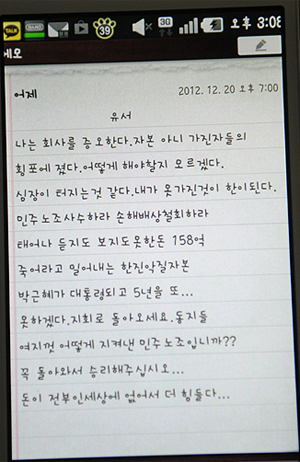 TALK
39
3G
오후 3:08
메모
어제
2012. 12. 20 오후 7:00
유서
나는 회사를 증오한다.자본 아니 가진자들의
횡포에 졌다.어떻게 해야할지 모르겠다.
심장이 터지는것 같다.내가 못가진것이 한이된다.
민주노조사수하라 손해배상철회하라
태어나 듣지도 보지도못한돈 158억
죽어라고 밀어내는 한진악질자본
박근혜가 대통령되고 5년을 또...
못하겠다.지회로 돌아오세요.동지들
여지껏 어떻게 지켜낸 민주노조입니까??
꼭 돌아와서 승리해주십시오...
돈이 전부인세상에 없어서 더 힘들다...